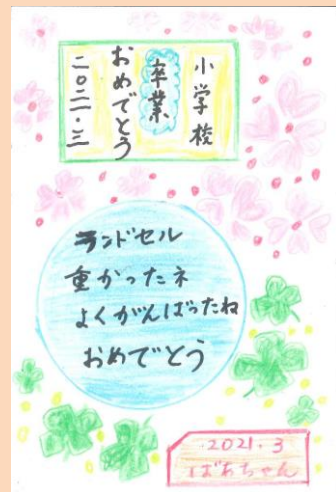 小学校
卒業
おめでとう
二〇二一・三
ランドセル
重かったネ
よくがんばったね
おめでとう
2021.3
ばあちゃん